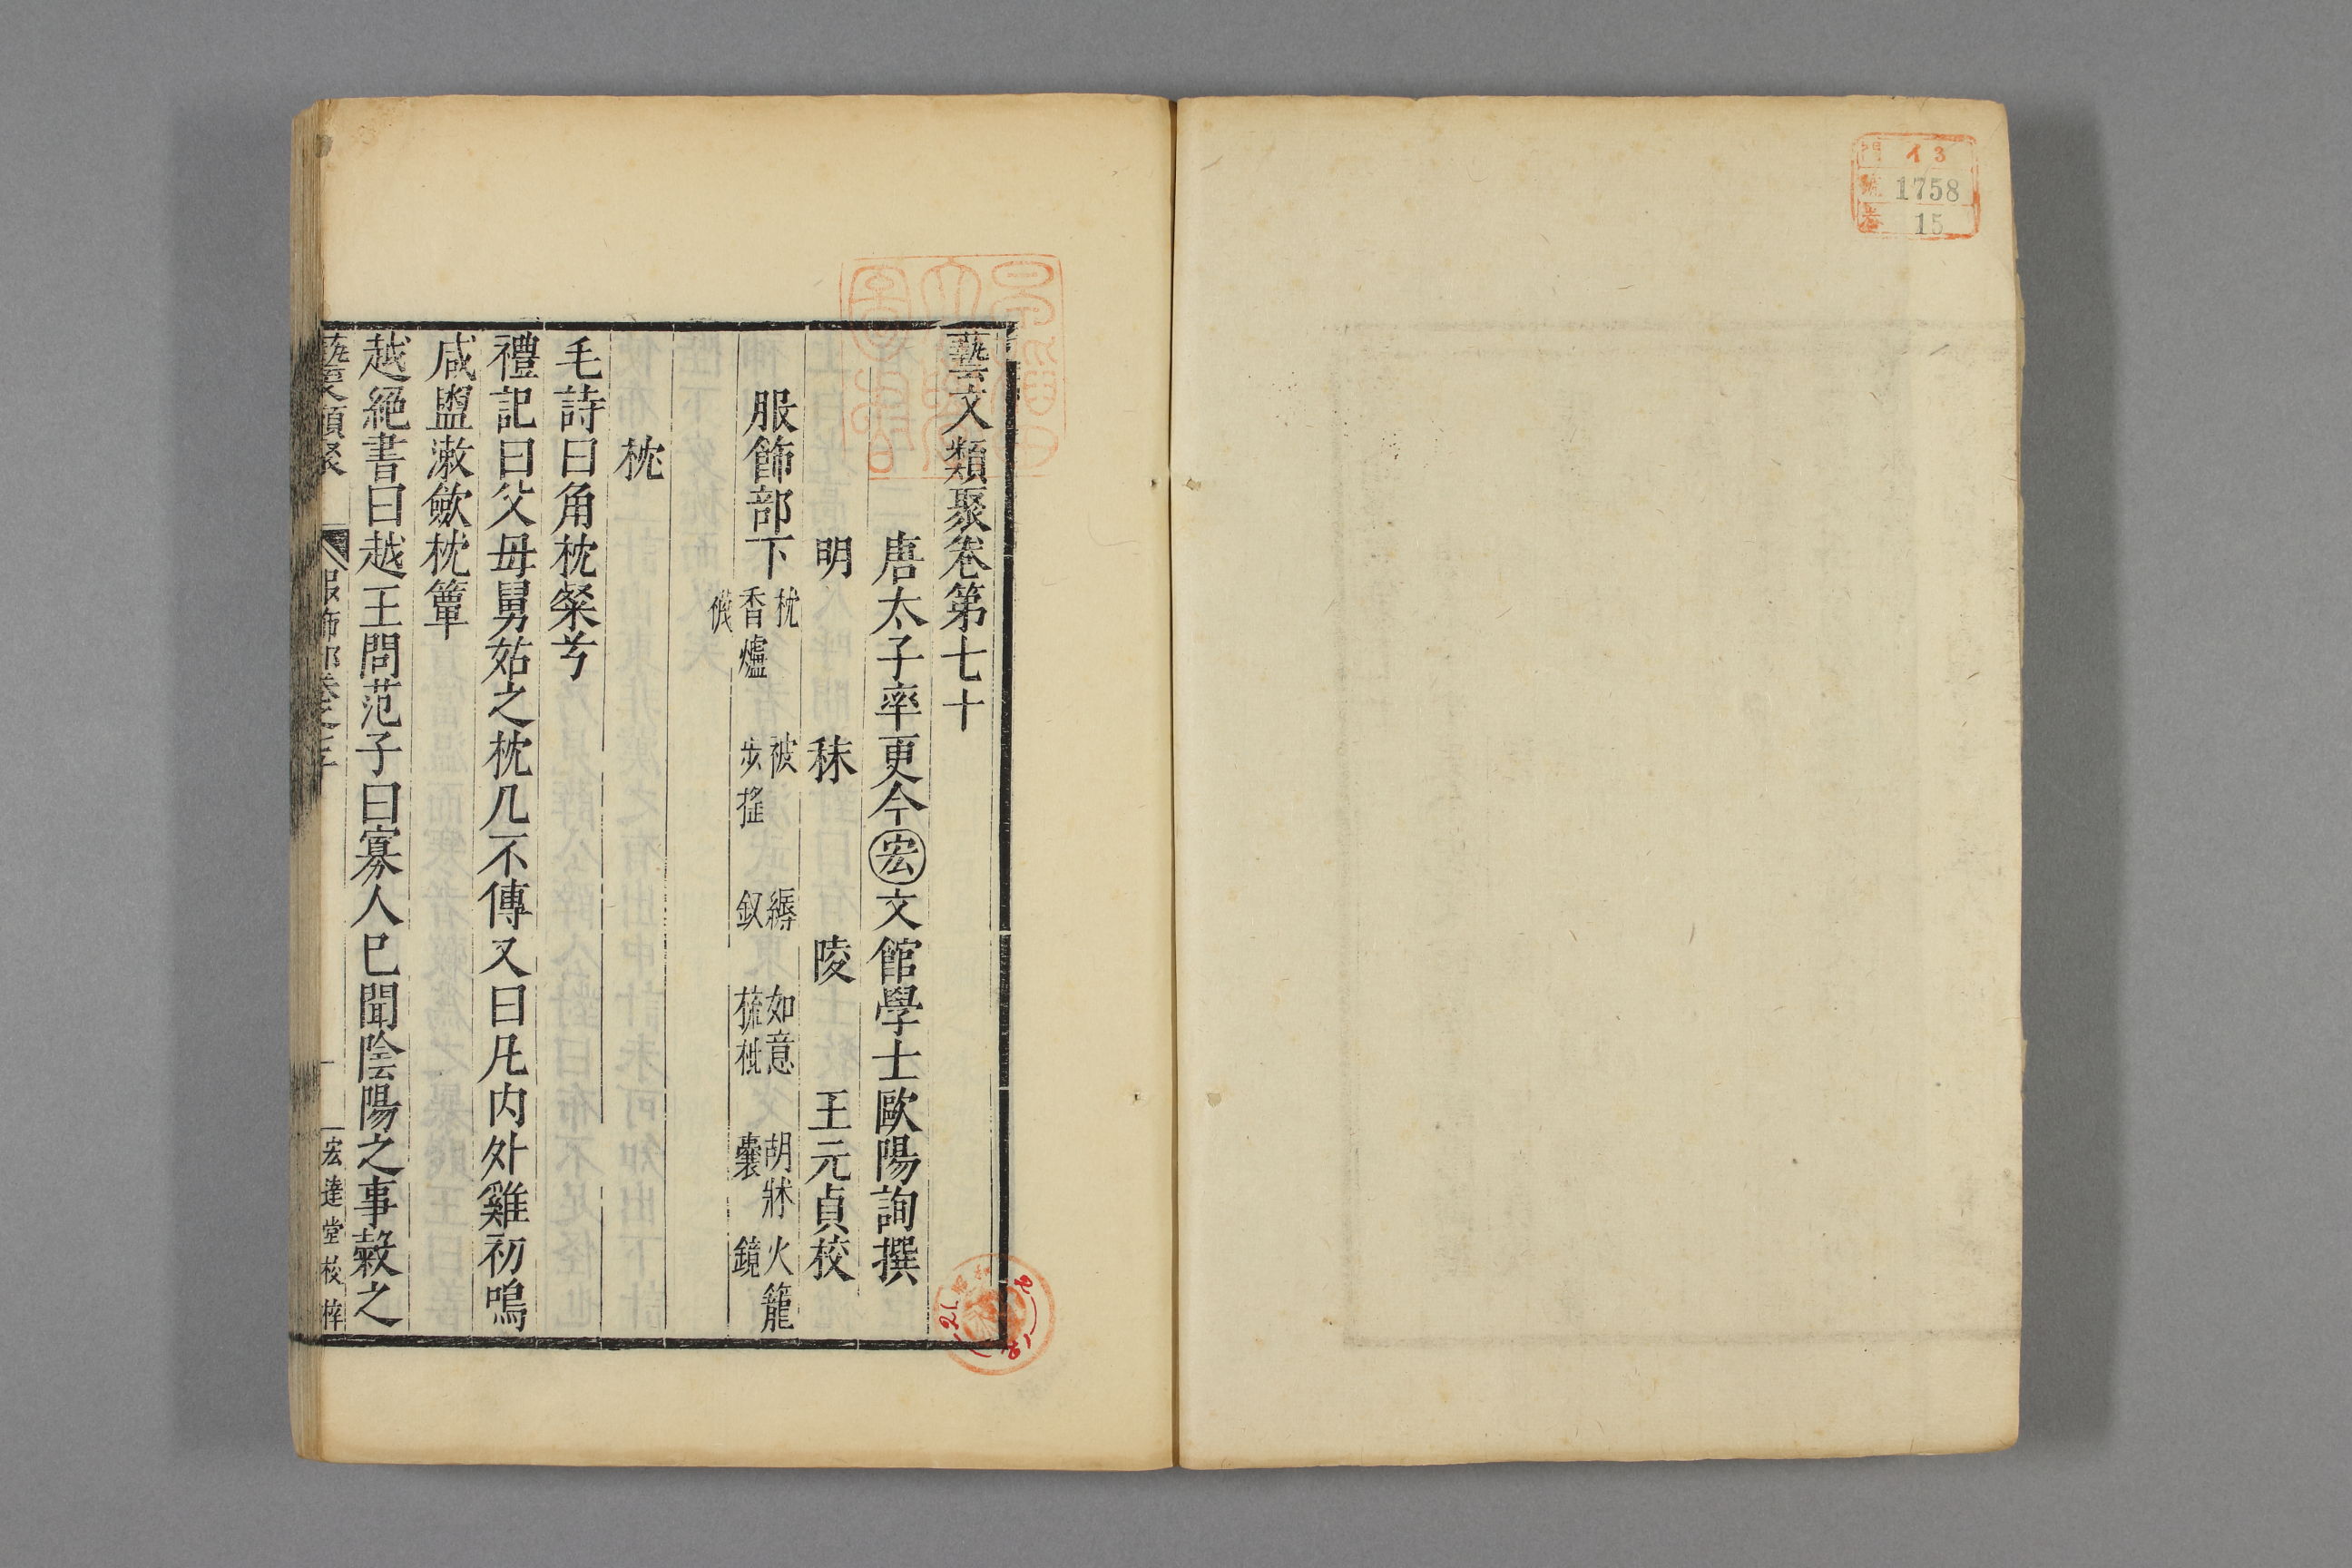 門 イ3
號 1758
卷 15
藝文類聚卷第七十
唐太子率更令宏文館學士歐陽詢撰
明 秣 陵 王元貞校
服飾部下 枕 被 縟 如意 胡牀 火籠
香爐 步搖 釵 梳枇 囊 鏡
襪
枕
毛詩曰角枕粲兮
禮記曰父母舅姑之枕几不傳又曰凡内外雞初鳴
咸盥漱歛枕簟
越絕書曰越王問范子曰寡人已聞陰陽之事榖之
藝文類聚 服飾部卷之七十 一 宏達堂校梓